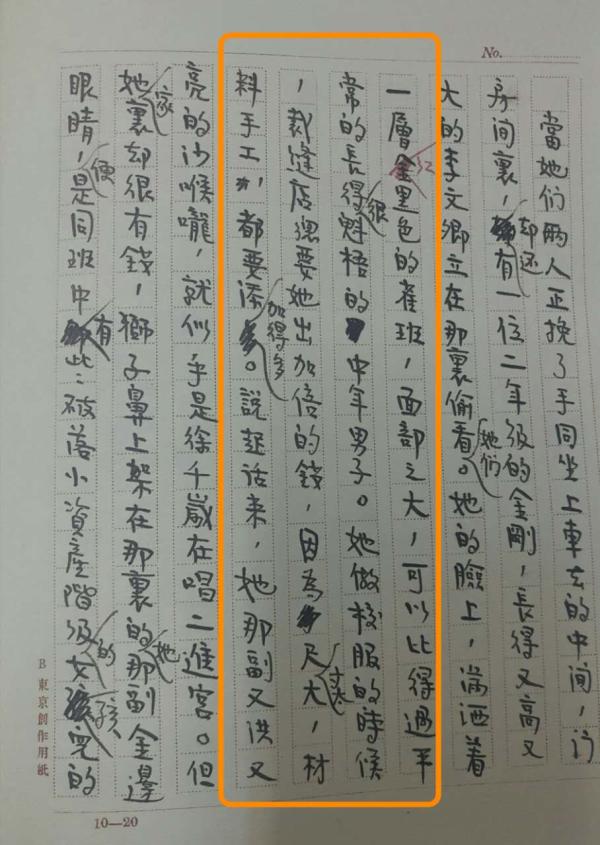 No.
當她们兩人正挽了手同坐上車去的中间，
房间裏，却还有一位二年级的金刚，長得又高又
大的李文卿立在那裏偷看她们。她的臉上，滿洒着
一層红黑色的雀斑，面部之大，可以比得過平
常的長得很魁梧的中年男子。她做校服的時候
，裁縫店總要她出加倍的錢，因為尺寸太大，材
料手工，都要添加得多。説起话来，她那副又洪又
亮的沙喉嚨，就似乎是徐千歲在唱二進宮。但
她家裏却很有錢，獅子鼻上架在那裏的她那副金邊
眼睛，便是同班中有此破落小資產階級的女孩兒的
B 東京創作用紙
10—20